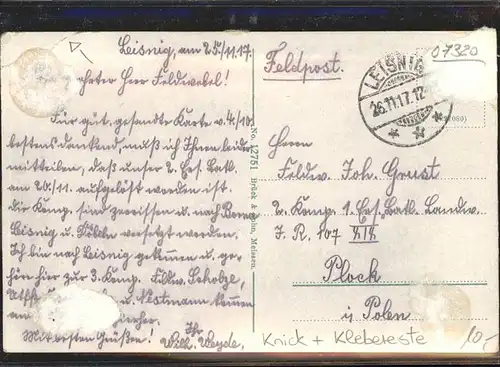 Leisnig, am 25/11.17.
geehrter Herr Feldwebel!
Für gut gesandte Karte v. 4/10
bestens dankend, muß ich Ihnen leider
mitteilen, daß unser 2. Ers. Batl.
am 20/11. aufgelöst worden ist.
Die Komp. sind zerrissen u. nach Borna
Leisnig u. Döbeln versetzt worden.
Ich bin nach Leisnig gekommen u. ge-
höre hier zur 3. Komp. Feldw.
u. kamen
am
Ihr
Mit besten Grüßen! Wilh.
No. 12751 Brück & Sohn, Meissen.
Feldpost.
LEISNIG
26.11.17.12
07320
Herrn
Feldw. Joh.
2. Komp. 1. Ers. Batl. Landw.
J. R. 107 XIX
Plock
i. Polen
Knick + Klebereste
10,-